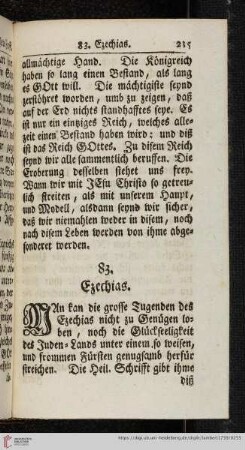 83. Ezechias. 215
allmächtige Hand. Die Königreich
haben so lang einen Bestand, als lang
es GOtt will. Die mächtigiste seynd
zerstöhret worden, umb zu zeigen, daß
auf der Erd nichts standhafftes seye. Es
ist nur ein eintziges Reich, welches alle-
zeit einen Bestand haben wird: und diß
ist das Reich GOttes. Zu disem Reich
seynd wir alle sammentlich beruffen. Die
Eroberung desselben stehet uns frey.
Wann wir mit JEsu Christo so getreu-
lich streiten, als mit unserem Haupt,
und Modell, alsdann seynd wir sicher,
daß wir niemahlen weder in disem, noch
nach disem Leben werden von ihme abge-
sonderet werden.
83.
Ezechias.
MAn kan die grosse Tugenden des
Ezechias nicht zu Genügen lo-
ben, noch die Glückseeligkeit
des Juden-Lands unter einem so weisen,
und frommen Fürsten genugsamb herfür
streichen. Die Heil. Schrifft gibt ihme
diß